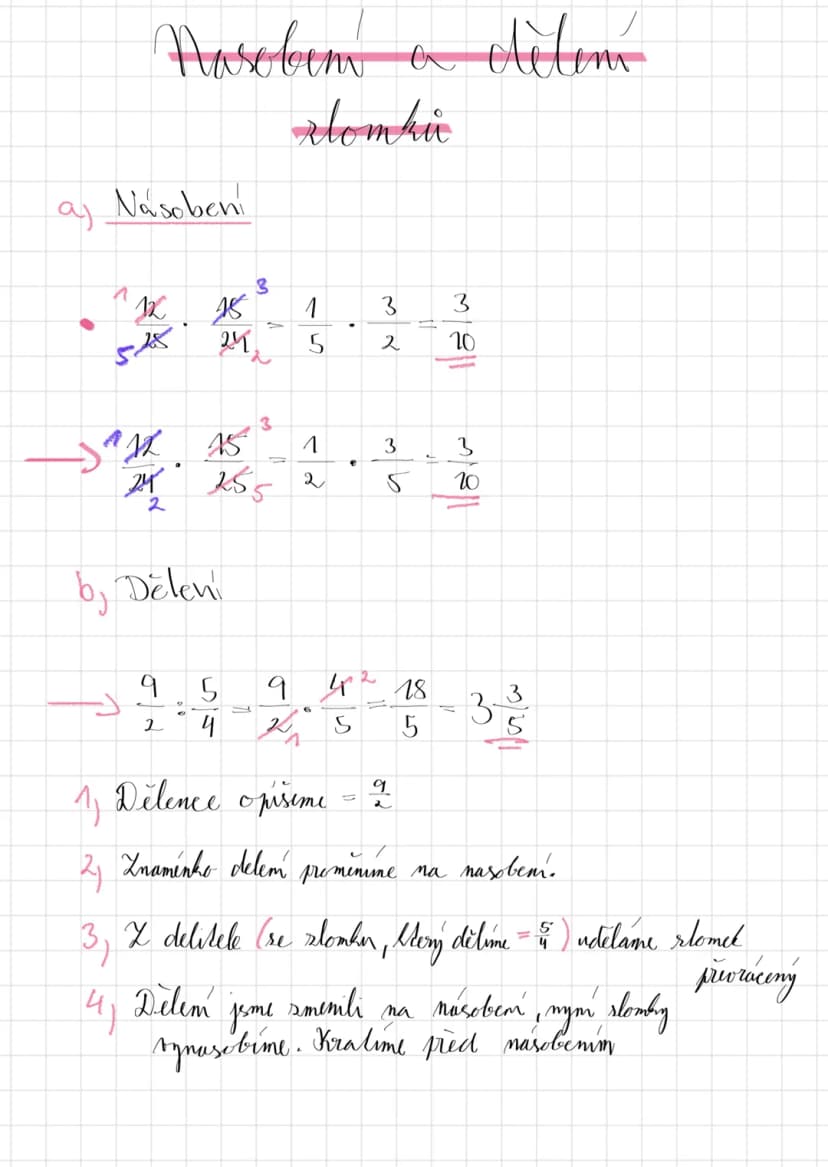 Nasobení a dělení
zlomků
a) Násobení
• 1 12/25 5 · 15/24 3 2 = 1/5 · 3/2 = 3/10
→ 1 12/24 2 · 15/25 3 5 = 1/2 · 3/5 = 3/10
b) Dělení
→ 9/2 : 5/4 = 9/2 1 · 4/5 2 = 18/5 = 3 3/5
1) Dělence opíšeme = 9/2
2) Znaménko delení promeníme na nasobení.
3) Z delitele (ze zlomku, který dělíme = 5/4) uděláme zlomek
převrácený
4) Dělení jsme zmenili na násobení, nyní zlomky
vynasobíme. Kratíme před násobením